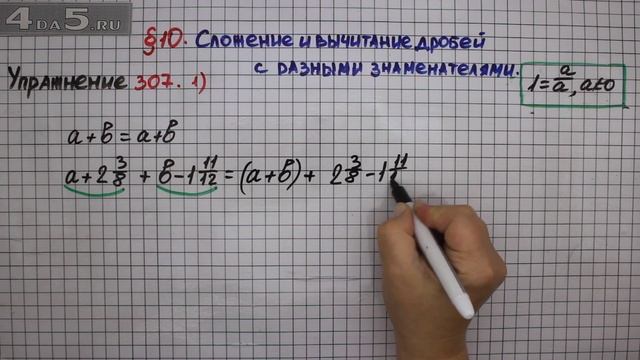 4DA5.RU
§10. Сложение и вычитание дробей
с разными знаменателями.
1 = a/a, a≠0
Упражнение 307. 1)
a + b = a + b
a + 2 3/8 + b - 1 11/12 = (a + b) + 2 3/8 - 1 11/1